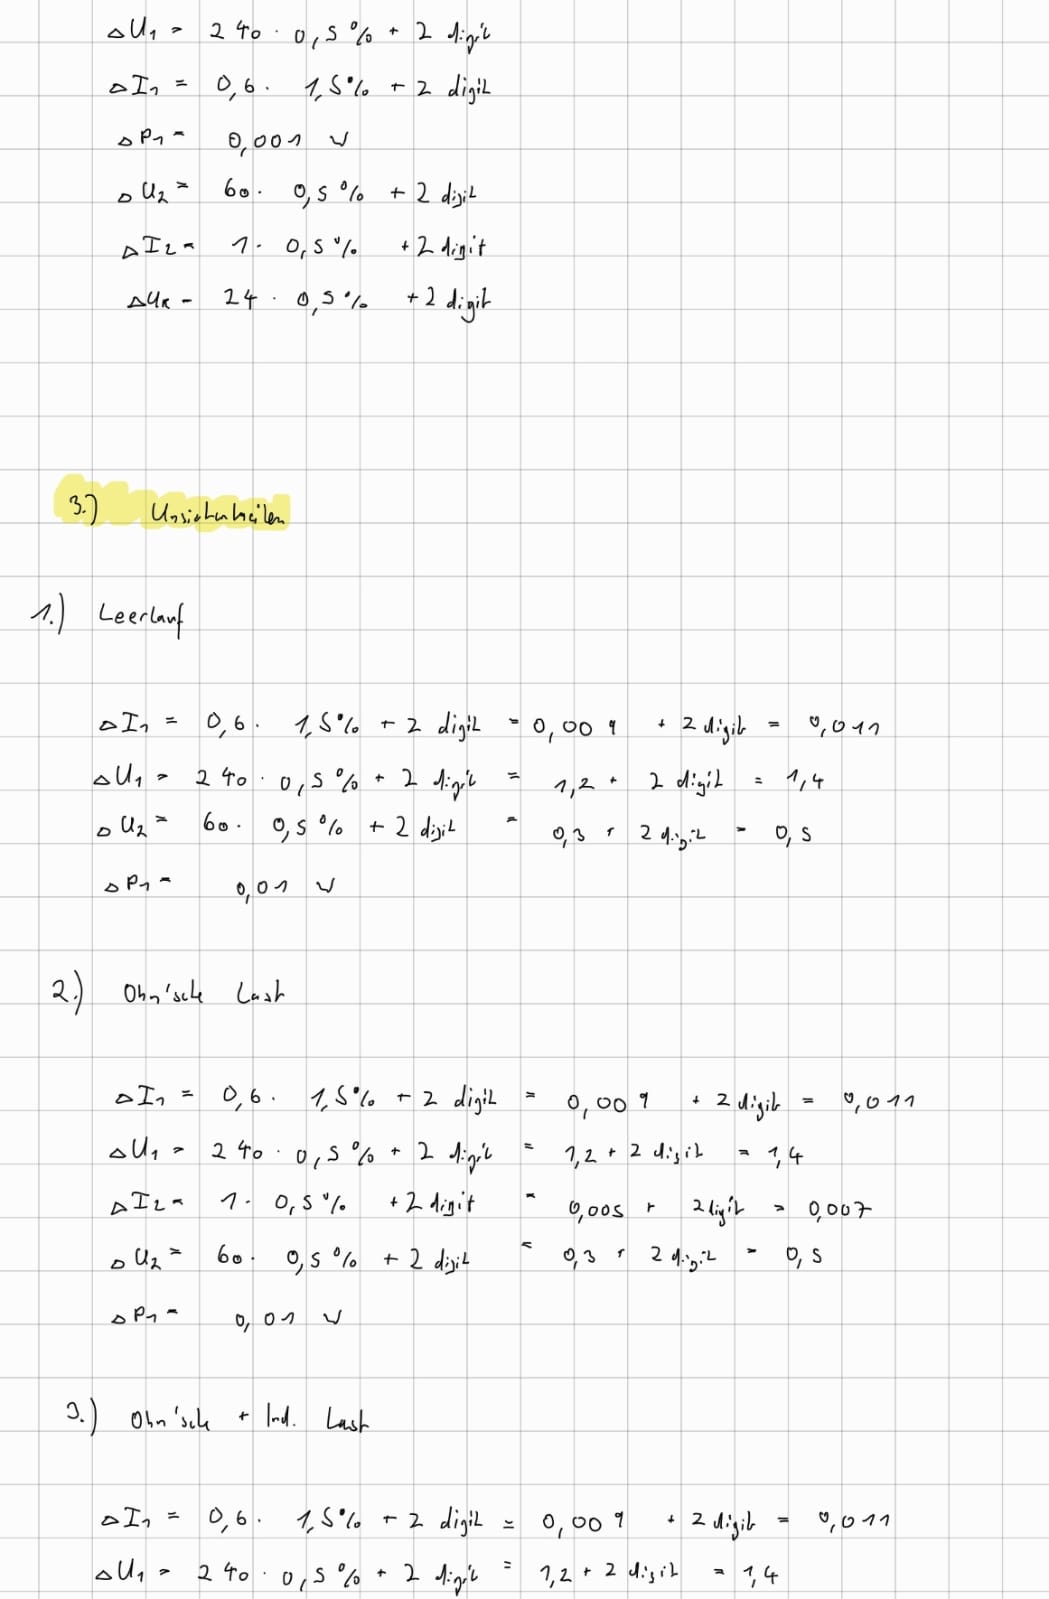 ΔU₁ = 240 · 0,5 % + 2 digit
ΔI₁ = 0,6 · 1,5 % + 2 digit
ΔP₁ = 0,001 W
ΔU₂ = 60 · 0,5 % + 2 digit
ΔI₂ = 1 · 0,5 % + 2 digit
ΔU_R = 24 · 0,5 % + 2 digit
3.) Unsicherheiten
1.) Leerlauf
ΔI₁ = 0,6 · 1,5 % + 2 digit = 0,009 + 2 digit = 0,011
ΔU₁ = 240 · 0,5 % + 2 digit = 1,2 + 2 digit = 1,4
ΔU₂ = 60 · 0,5 % + 2 digit = 0,3 + 2 digit = 0,5
ΔP₁ = 0,01 W
2.) Ohm'sche Last
ΔI₁ = 0,6 · 1,5 % + 2 digit = 0,009 + 2 digit = 0,011
ΔU₁ = 240 · 0,5 % + 2 digit = 1,2 + 2 digit = 1,4
ΔI₂ = 1 · 0,5 % + 2 digit = 0,005 + 2 digit = 0,007
ΔU₂ = 60 · 0,5 % + 2 digit = 0,3 + 2 digit = 0,5
ΔP₁ = 0,01 W
3.) Ohm'sche + Ind. Last
ΔI₁ = 0,6 · 1,5 % + 2 digit = 0,009 + 2 digit = 0,011
ΔU₁ = 240 · 0,5 % + 2 digit = 1,2 + 2 digit = 1,4